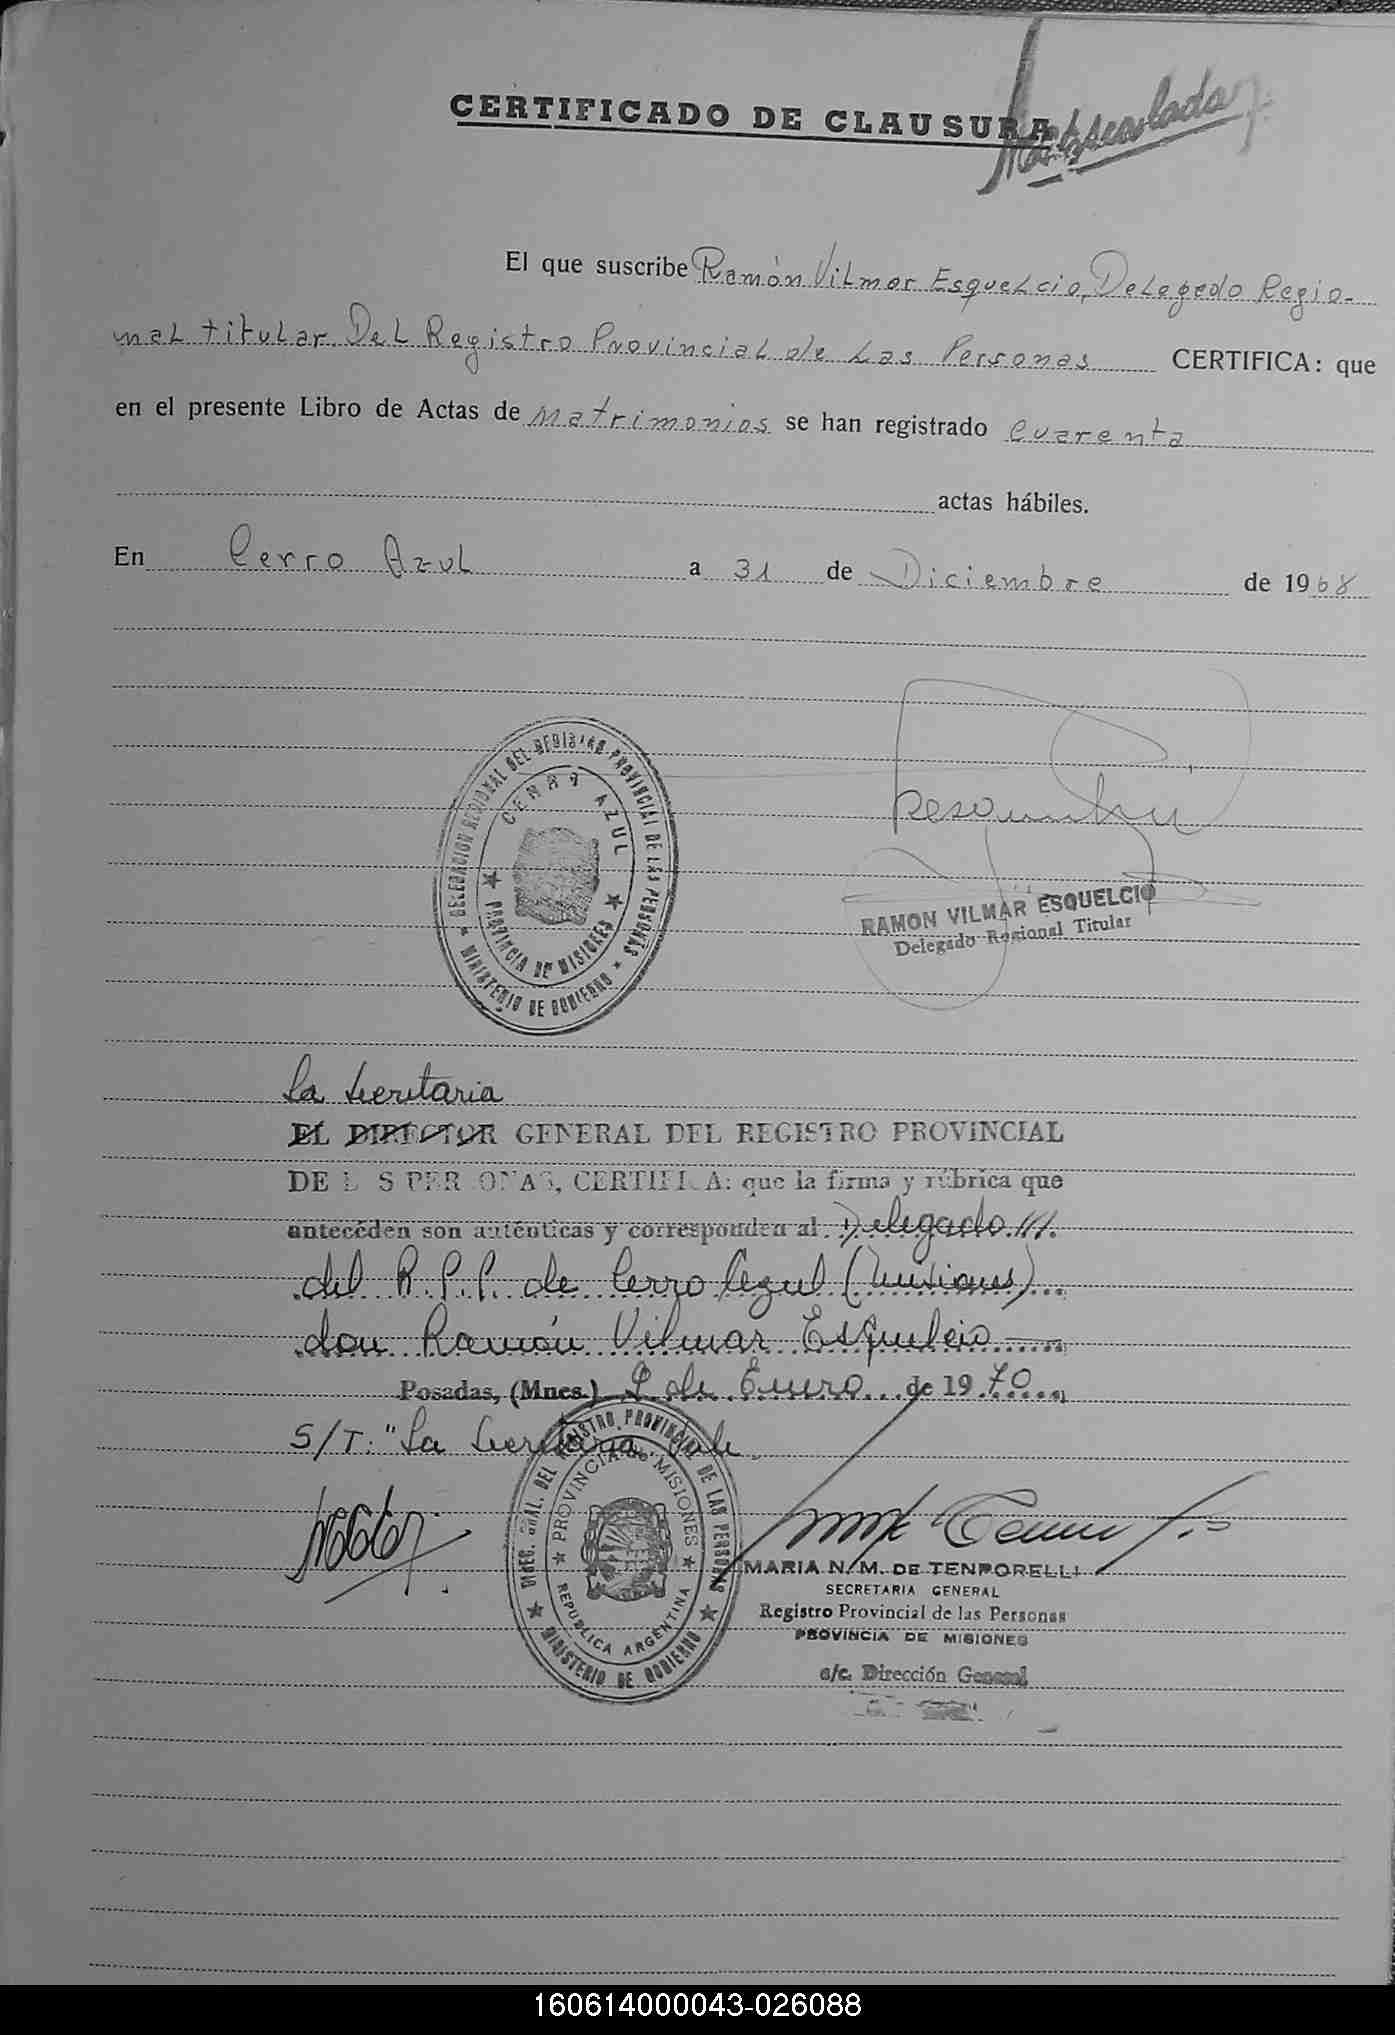 CERTIFICADO DE CLAUSURA
El que suscribe Ramón Vilmar Esquelcio, Delegado Regio-
nal titular Del Registro Provincial de Las Personas CERTIFICA: que
en el presente Libro de Actas de Matrimonios se han registrado Cuarenta
actas hábiles.
En Cerro Azul a 31 de Diciembre de 1968
DELEGACION REGIONAL DEL REGISTRO PROVINCIAL DE LAS PERSONAS
CERRO AZUL
PROVINCIA DE MISIONES
MINISTERIO DE GOBIERNO
RAMON VILMAR ESQUELCIO
Delegado Regional Titular
La Secretaria
EL DIRECTOR GENERAL DEL REGISTRO PROVINCIAL
DE L S PER ONAS, CERTIFI A: que la firma y rúbrica que
anteceden son auténticas y corresponden al Delegado
del R.P.P. de Cerro Azul (Misiones)
don Ramón Vilmar Esquelcio
Posadas, (Mnes.) 2 de Enero de 1970
S/T: "La Secretaria" Vale
DIREC. GRAL. DEL REGISTRO PROVINCIAL DE LAS PERSONAS
PROVINCIA DE MISIONES
REPUBLICA ARGENTINA
MINISTERIO DE GOBIERNO
MARIA N. M. DE TENPORELLI
SECRETARIA GENERAL
Registro Provincial de las Personas
PROVINCIA DE MISIONES
a/c. Dirección General
160614000043-026088